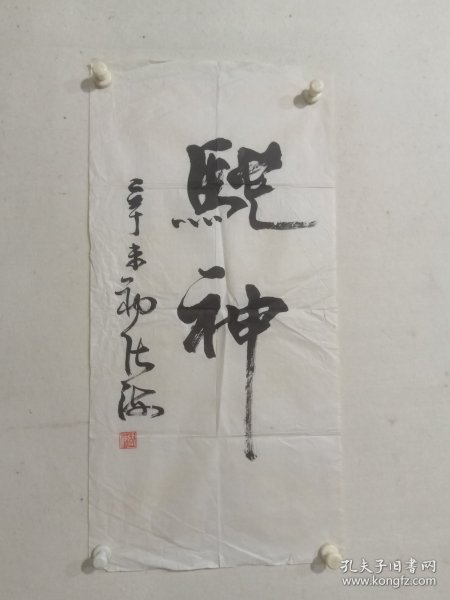 馳神
辛未初张海
孔夫子旧书网
www.kongfz.com